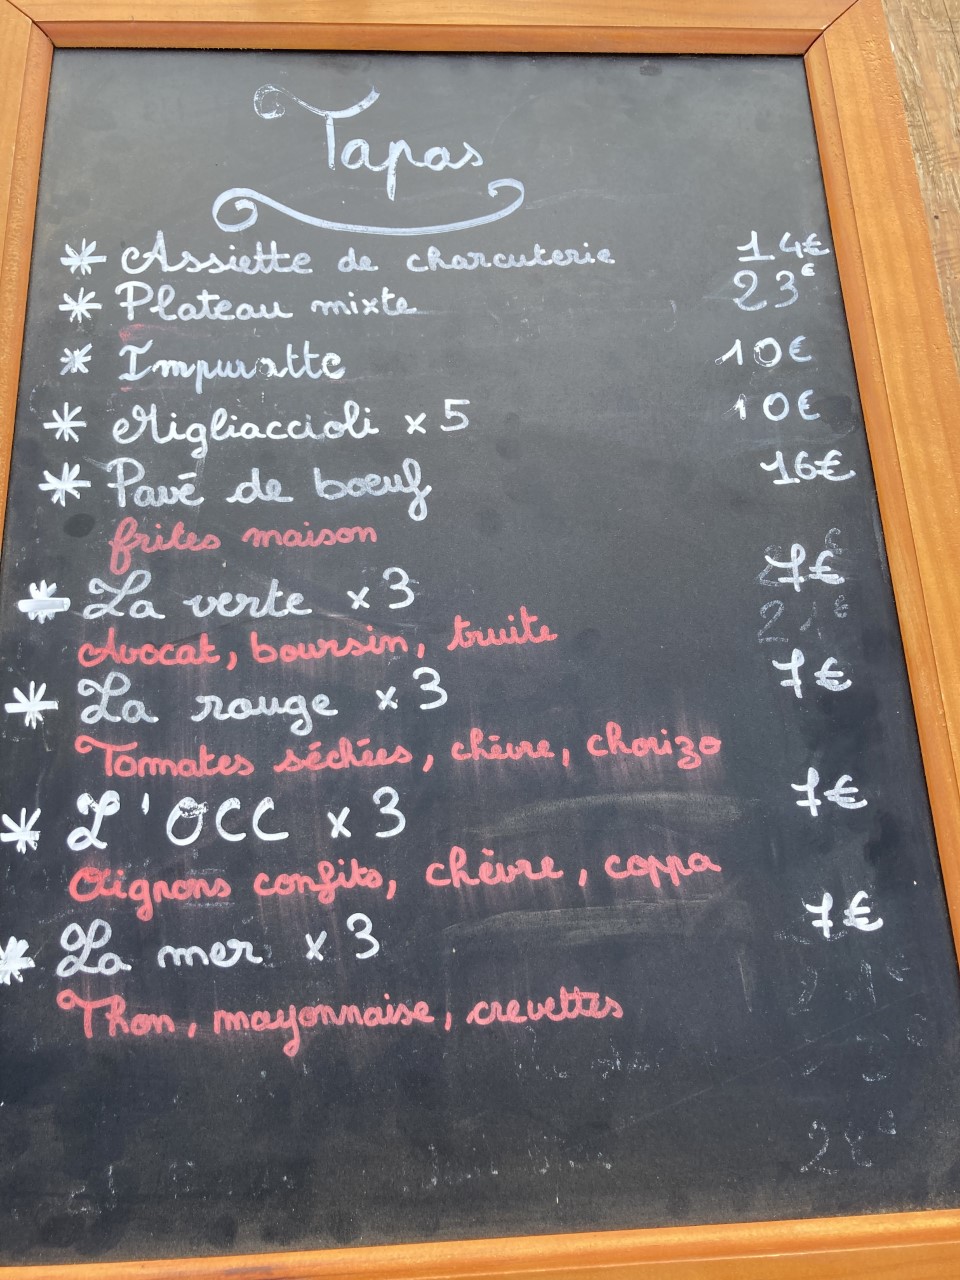 Tapas
* Assiette de charcuterie 14€
* Plateau mixte 23€
* Impuratte 10€
* Migliaccioli x 5 10€
* Pavé de boeuf 16€
frites maison
* La verte x 3 7€
Avocat, boursin, truite
* La rouge x 3 7€
Tomates séchées, chèvre, chorizo
* L'OCC x 3 7€
Oignons confits, chèvre, coppa
* La mer x 3 7€
Thon, mayonnaise, crevettes